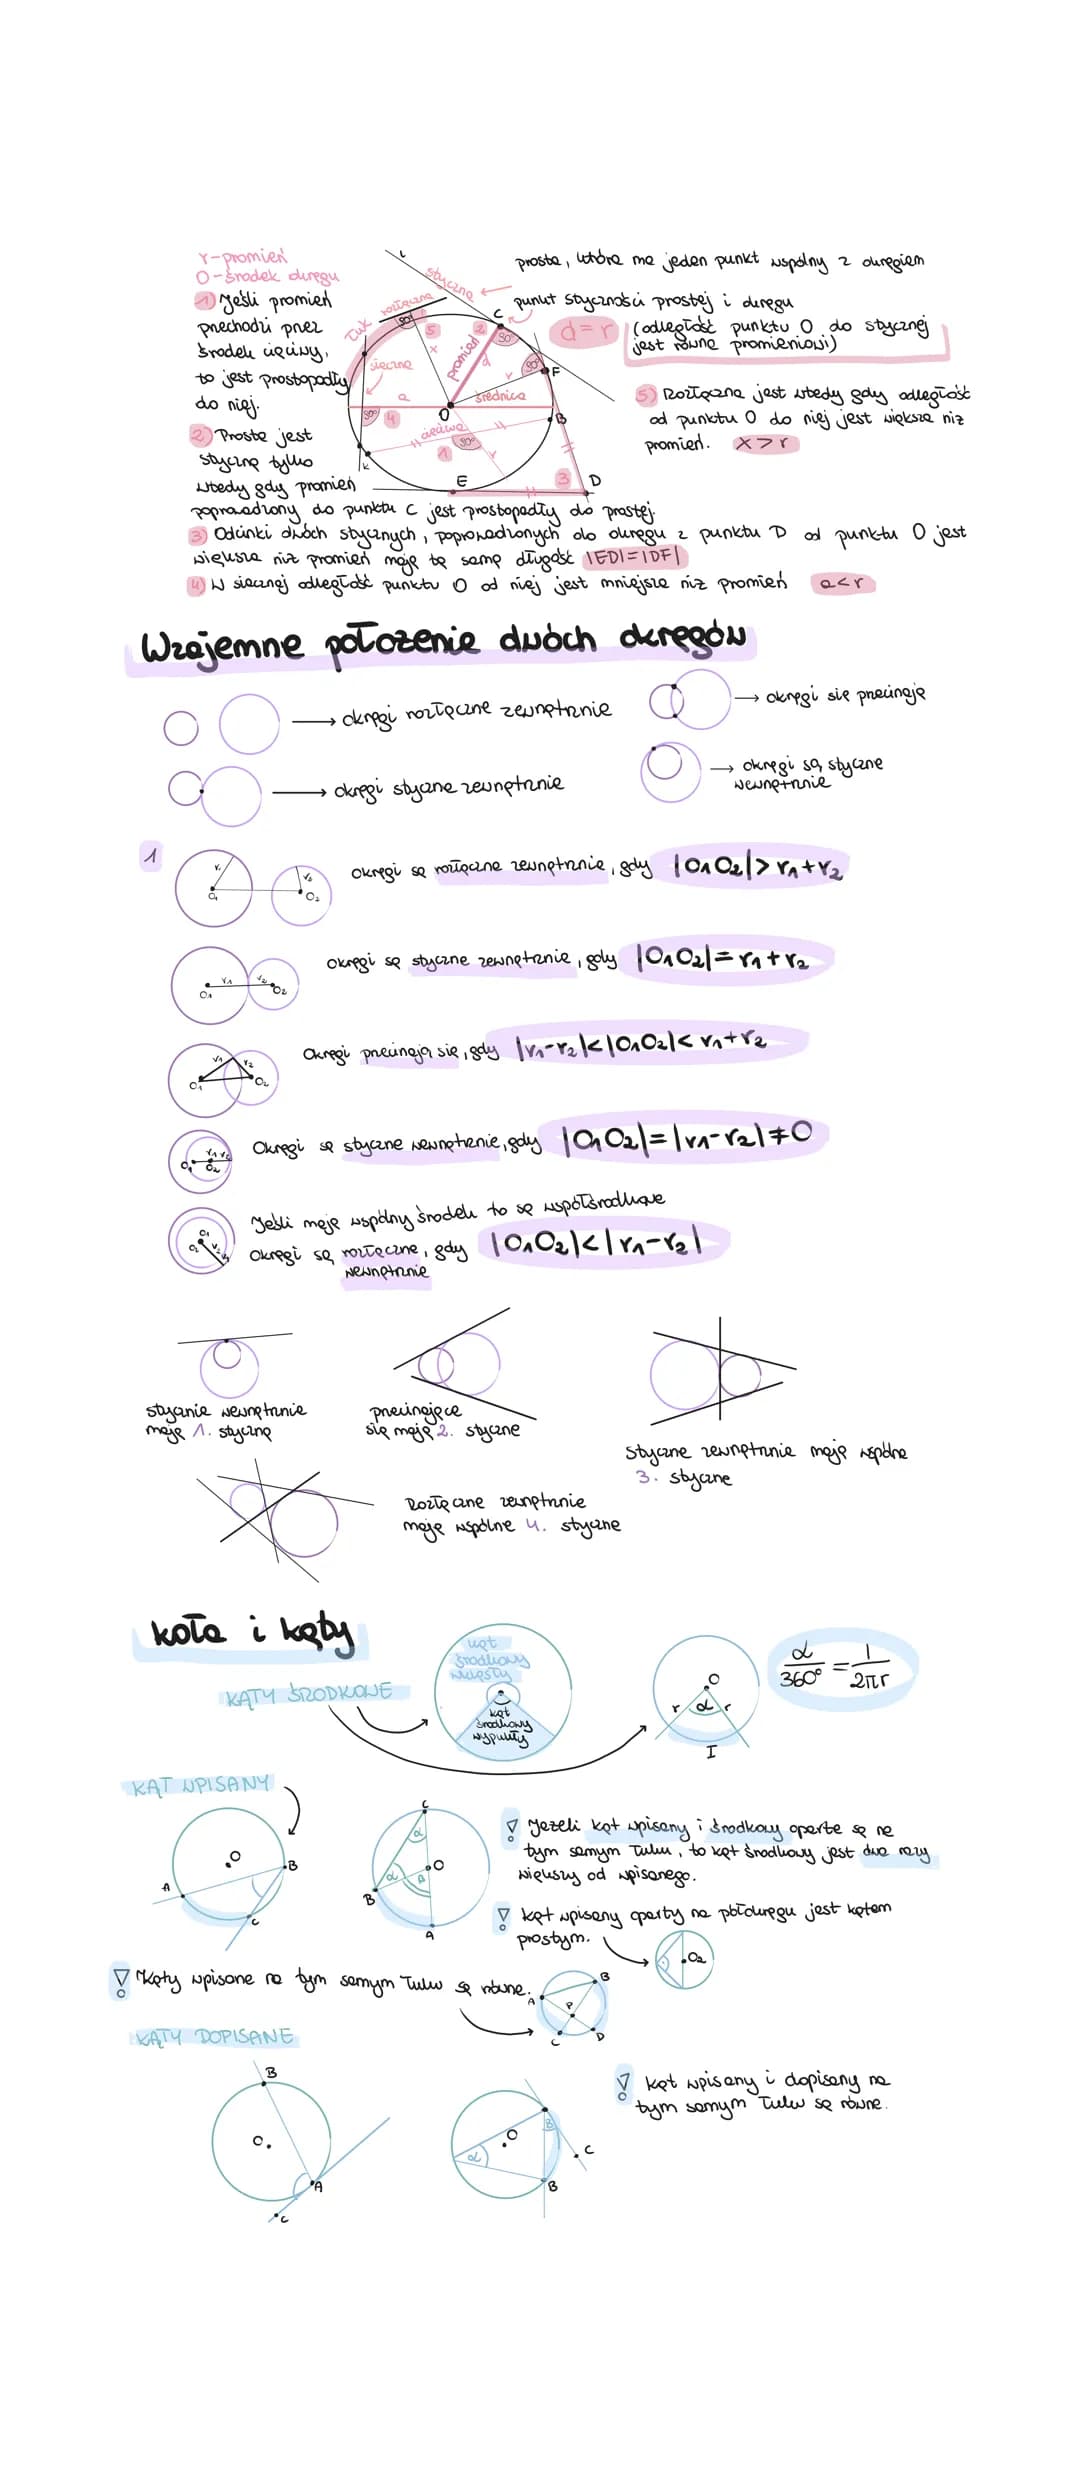 r-promień
O-środek okręgu
1) Jeśli promień
przechodzi przez
środek cięciwy,
to jest prostopadły
do niej.
2) Prosta jest
styczną tylko
wtedy gdy promień
poprowadzony do punktu C jest prostopadły do prostej.
3) Odcinki dwóch stycznych, poprowadzonych do okręgu z punktu D od punktu O jest
większa niż promień mają tę samą długość |ED|=|DF|
4) W siecznej odległość punktu O od niej jest mniejsza niż promień a<r
styczna
rozłączna
łuk
sieczna
promień
średnica
cięciwa
a
x
d
r
r
90°
90°
90°
90°
90°
1
2
3
4
5
C
F
B
O
K
E
D
prosta, która ma jeden punkt wspólny z okręgiem
punkt styczności prostej i okręgu
d=r (odległość punktu O do stycznej
jest równa promieniowi)
5) Rozłączna jest wtedy gdy odległość
od punktu O do niej jest większa niż
promień. x>r
Wzajemne położenie dwóch okręgów
→ okręgi rozłączne zewnętrznie
→ okręgi się przecinają
→ okręgi styczne zewnętrznie
→ okręgi są styczne
wewnętrznie
1
r₁ O₁ r₂ O₂
Okręgi są rozłączne zewnętrznie, gdy |O₁O₂|>r₁+r₂
O₁ r₁ r₂ O₂
Okręgi są styczne zewnętrznie, gdy |O₁O₂|=r₁+r₂
O₁ r₁ r₂ O₂
Okręgi przecinają się, gdy |r₁-r₂|<|O₁O₂|<r₁+r₂
O₁ r₁ r₂ O₂
Okręgi są styczne wewnętrznie, gdy |O₁O₂|=|r₁-r₂|≠0
Jeśli mają wspólny środek to są współśrodkowe
O₁ O₂
Okręgi są rozłączne, gdy |O₁O₂|<|r₁-r₂|
wewnętrznie
stycznie wewnętrznie
mają 1. styczną
przecinające
się mają 2. styczne
styczne zewnętrznie mają wspólne
3. styczne
Rozłączne zewnętrznie
mają wspólne 4. styczne
koła i kąty
KĄTY ŚRODKOWE
kąt
środkowy
wklęsły
kąt
środkowy
wypukły
O
r α r
I
α/360° = 1/2πr
KĄT WPISANY
O
A
B
C
C
α
O
α
B
A
! Jeżeli kąt wpisany i środkowy oparte są na
tym samym łuku, to kąt środkowy jest dwa razy
większy od wpisanego.
! kąt wpisany oparty na półokręgu jest kątem
prostym.
O₂
! Kąty wpisane na tym samym łuku są równe.
A
B
P
C
D
KĄTY DOPISANE
B
O
A
C
O
B
α
C
B
! kąt wpisany i dopisany na
tym samym łuku są równe.